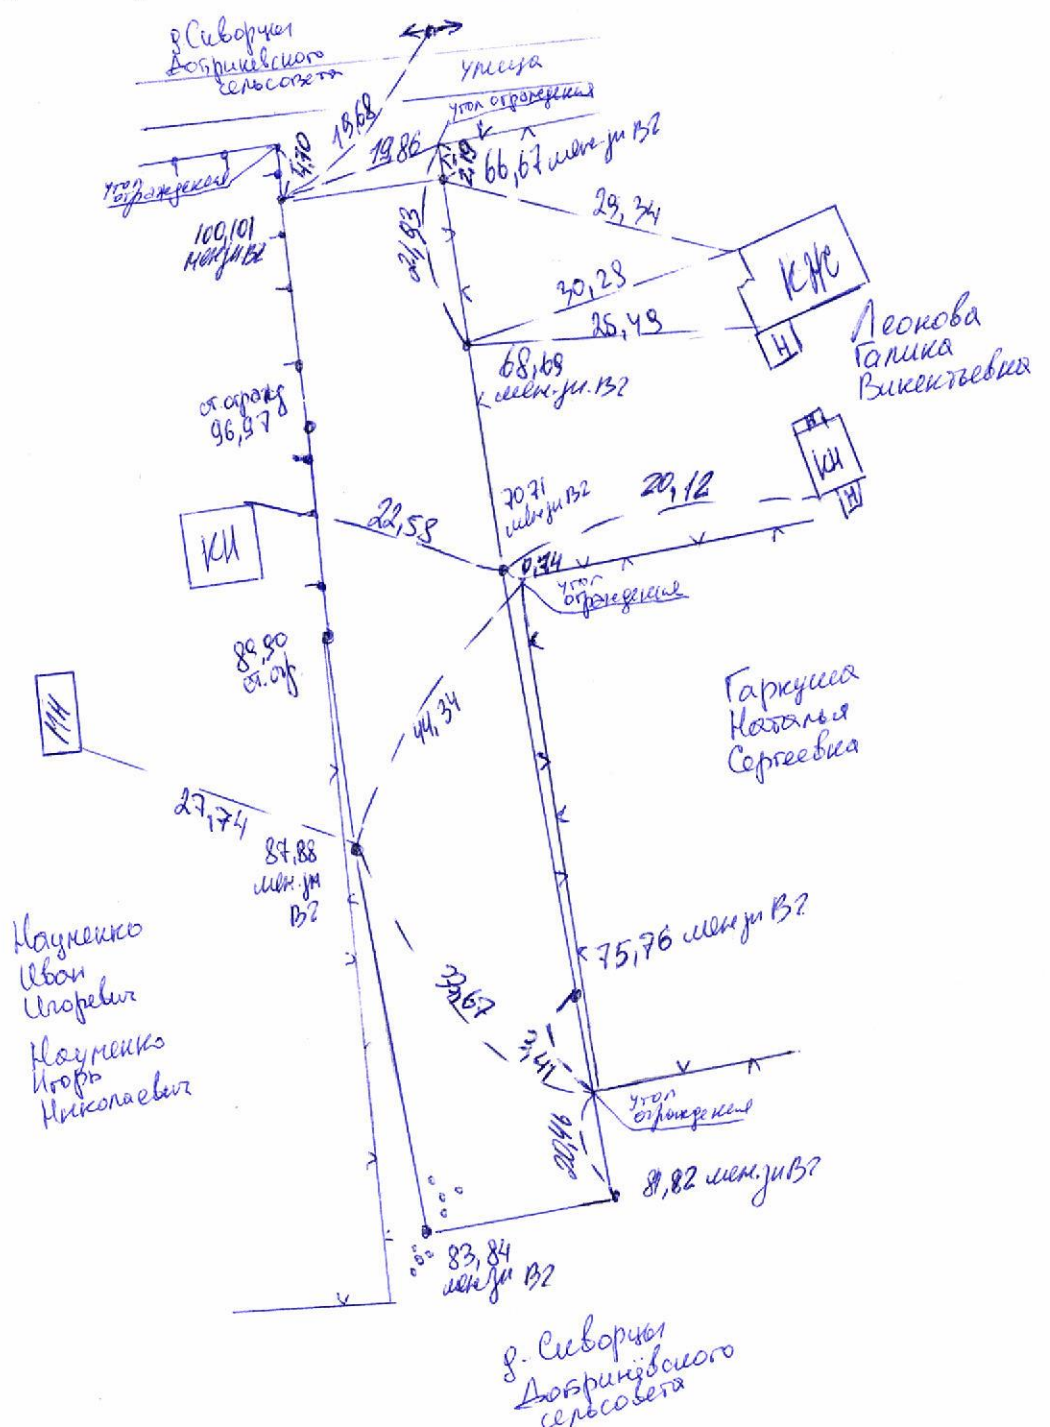 д. Скворцы
Добринёвского
сельсовета
улица
угол ограждения
19,68
19,86
4,70
2,19
66,67 меж.зн В2
угол
ограждения
29,34
100,101
меж.зн В2
21,93
30,28
КЖС
25,49
Н
Леонова
Галина
Викентьевна
68,69
меж.зн. В2
ст. огражд
96,97
Н
КН
Н
70,71
меж.зн В2
20,12
22,58
КН
0,74
угол
ограждения
89,90
ст. огр.
44,34
Гаркуша
Наталья
Сергеевна
27,74
87,88
меж.зн
В2
75,76 меж.зн В2
Науменко
Иван
Игоревич
33,67
Науменко
Игорь
Николаевич
3,41
угол
ограждения
81,82 меж.зн В2
83,84
меж.зн В2
д. Скворцы
Добринёвского
сельсовета